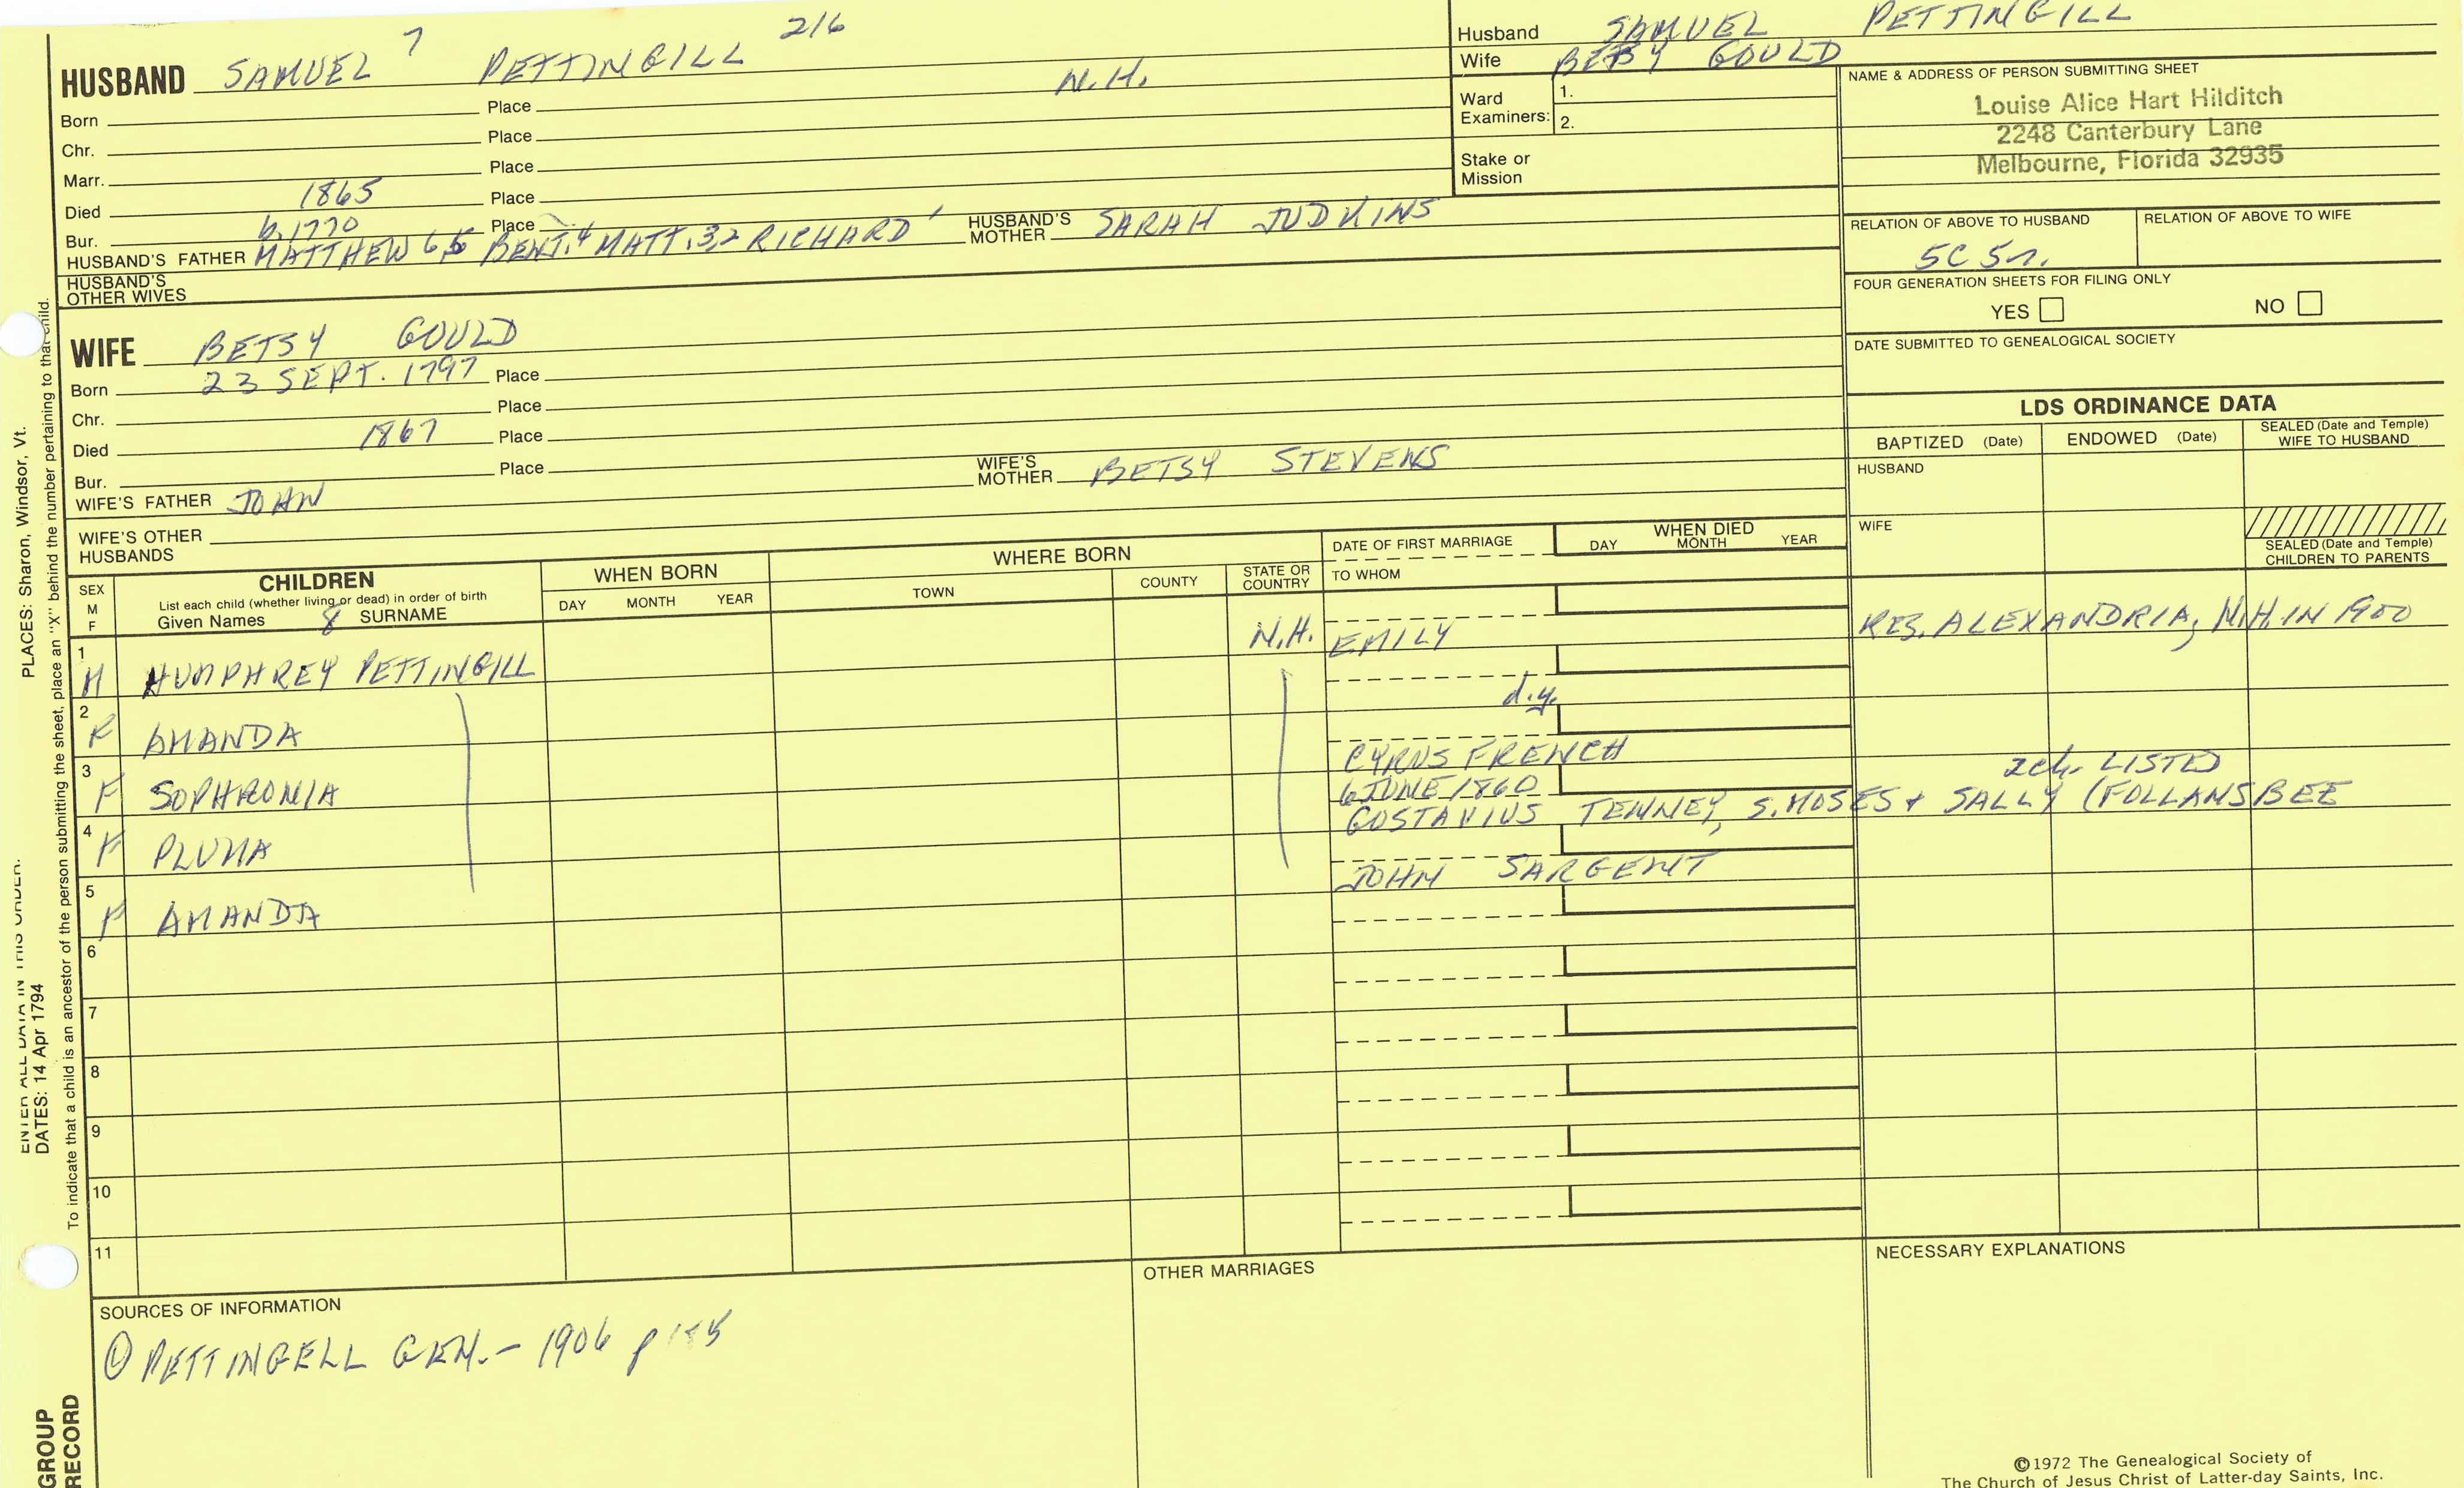 HUSBAND SAMUEL 7 PETTINGILL 216
Born Place N.H.
Chr. Place
Marr. Place
Died 1865 Place
Bur. b. 1770 Place
HUSBAND'S FATHER MATTHEW 6 5 BENJ. 4 MATT. 3,2 RICHARD 1 HUSBAND'S MOTHER SARAH JUDKINS
HUSBAND'S OTHER WIVES
WIFE BETSY GOULD
Born 23 SEPT. 1797 Place
Chr. Place
Died 1867 Place
Bur. Place
WIFE'S FATHER JOHN WIFE'S MOTHER BETSY STEVENS
WIFE'S OTHER HUSBANDS
Husband SAMUEL PETTINGILL
Wife BETSY GOULD
Ward Examiners: 1.
2.
Stake or Mission
NAME & ADDRESS OF PERSON SUBMITTING SHEET
Louise Alice Hart Hilditch
2248 Canterbury Lane
Melbourne, Florida 32935
RELATION OF ABOVE TO HUSBAND RELATION OF ABOVE TO WIFE
5C 5r.
FOUR GENERATION SHEETS FOR FILING ONLY
YES NO
DATE SUBMITTED TO GENEALOGICAL SOCIETY
LDS ORDINANCE DATA
BAPTIZED (Date) ENDOWED (Date) SEALED (Date and Temple) WIFE TO HUSBAND
HUSBAND
WIFE
SEALED (Date and Temple) CHILDREN TO PARENTS
SEX M F
CHILDREN
List each child (whether living or dead) in order of birth
Given Names 8 SURNAME
WHEN BORN
DAY MONTH YEAR
WHERE BORN
TOWN COUNTY STATE OR COUNTRY
DATE OF FIRST MARRIAGE
TO WHOM
WHEN DIED
DAY MONTH YEAR
1 M HUMPHREY PETTINGILL N.H. EMILY RES. ALEXANDRIA, N.H. IN 1900
2 F AMANDA d.y.
3 F SOPHRONIA CYRUS FRENCH
4 F PLUMA 6 JUNE 1860 2ch. LISTED
GUSTAVIUS TENNEY, S. MOSES + SALLY (FOLLANSBEE
5 F AMANDA JOHN SARGENT
6
7
8
9
10
11
SOURCES OF INFORMATION
① PETTINGELL GEN. - 1906 p
OTHER MARRIAGES
NECESSARY EXPLANATIONS
©1972 The Genealogical Society of
The Church of Jesus Christ of Latter-day Saints, Inc.
ENTER ALL DATA IN THIS ORDER.
DATES: 14 Apr 1794
PLACES: Sharon, Windsor, Vt.
To indicate that a child is an ancestor of the person submitting the sheet, place an "X" behind the number pertaining to that child.
GROUP
RECORD